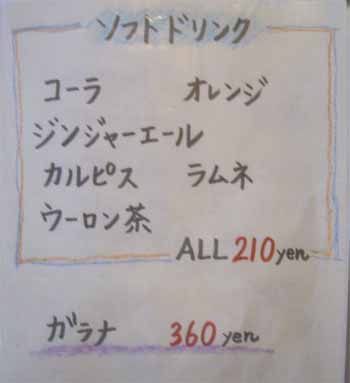 ソフトドリンク
コーラ オレンジ
ジンジャーエール
カルピス ラムネ
ウーロン茶
ALL 210yen
ガラナ 360yen